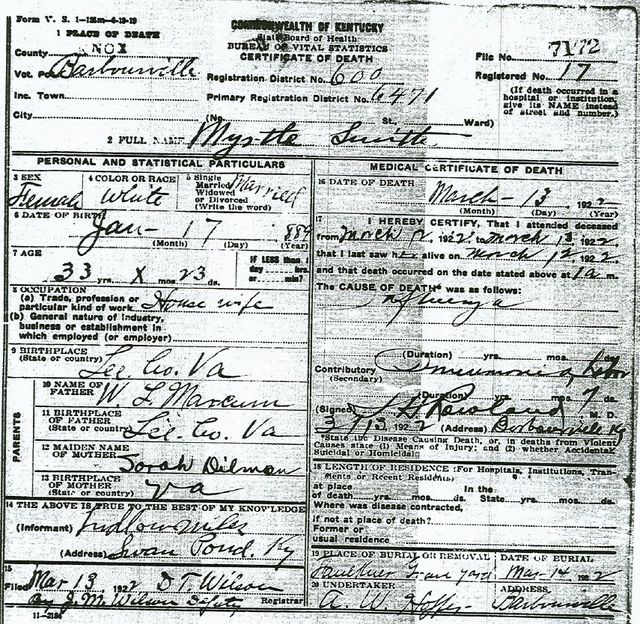 Form V. S. 1-125m-6-19-19
1 PLACE OF DEATH
COMMONWEALTH OF KENTUCKY
State Board of Health
BUREAU OF VITAL STATISTICS
CERTIFICATE OF DEATH
County KNOX
File No. 7172
Vot. Pct. Barbourville
Registration District No. 600
Registered No. 17
Inc. Town
Primary Registration District No. 6471
(If death occurred in a hospital or institution, give its NAME instead of street and number.)
City (No. St. Ward)
2 FULL NAME Myrtle Smith
PERSONAL AND STATISTICAL PARTICULARS
3 SEX Female
4 COLOR OR RACE White
5 Single Married Widowed or Divorced (Write the word) Married
6 DATE OF BIRTH Jan- 17 889
(Month) (Day) (Year)
7 AGE 33 yrs. X mos. 23 ds.
IF LESS than 1 day hrs. or min.?
8 OCCUPATION
(a) Trade, profession or particular kind of work House wife
(b) General nature of industry, business or establishment in which employed (or employer)
9 BIRTHPLACE (State or country) Lee. Co. Va
PARENTS
10 NAME OF FATHER W. L. Marcum
11 BIRTHPLACE OF FATHER (State or country) Lee. Co. Va
12 MAIDEN NAME OF MOTHER Sarah Dilman
13 BIRTHPLACE OF MOTHER (State or country) Va
14 THE ABOVE IS TRUE TO THE BEST OF MY KNOWLEDGE
(Informant) Miles
(Address) Swan Pond. Ky
15
Filed Mar 13, 1922 D T Wilson
By J. M. Wilson Deputy Registrar
11-2184
MEDICAL CERTIFICATE OF DEATH
16 DATE OF DEATH March- 13 1922
(Month) (Day) (Year)
17 I HEREBY CERTIFY, That I attended deceased
from March 12, 1922, March 13 1922
that I last saw her alive on March 12 1922
and that death occurred on the date stated above at 1 a m.
The CAUSE OF DEATH* was as follows:
Influenza
(Duration) yrs. mos. ds.
Contributory (Secondary) Pneumonia, Lobar
(Duration) yrs. mos. 7 ds.
(Signed) M. D.
3/13 1922 (Address) Barbourville Ky
*State the Disease Causing Death, or, in deaths from Violent Causes state (1) Means of Injury; and (2) whether Accidental, Suicidal or Homicidal.
18 LENGTH OF RESIDENCE (For Hospitals, Institutions, Transients or Recent Residents)
At place of death yrs. mos. ds. In the State yrs. mos. ds.
Where was disease contracted,
if not at place of death?
Former or usual residence
19 PLACE OF BURIAL OR REMOVAL Faulkner Grave yard
DATE OF BURIAL Mar-14 1922
20 UNDERTAKER A. W. Hopper
ADDRESS Barbourville